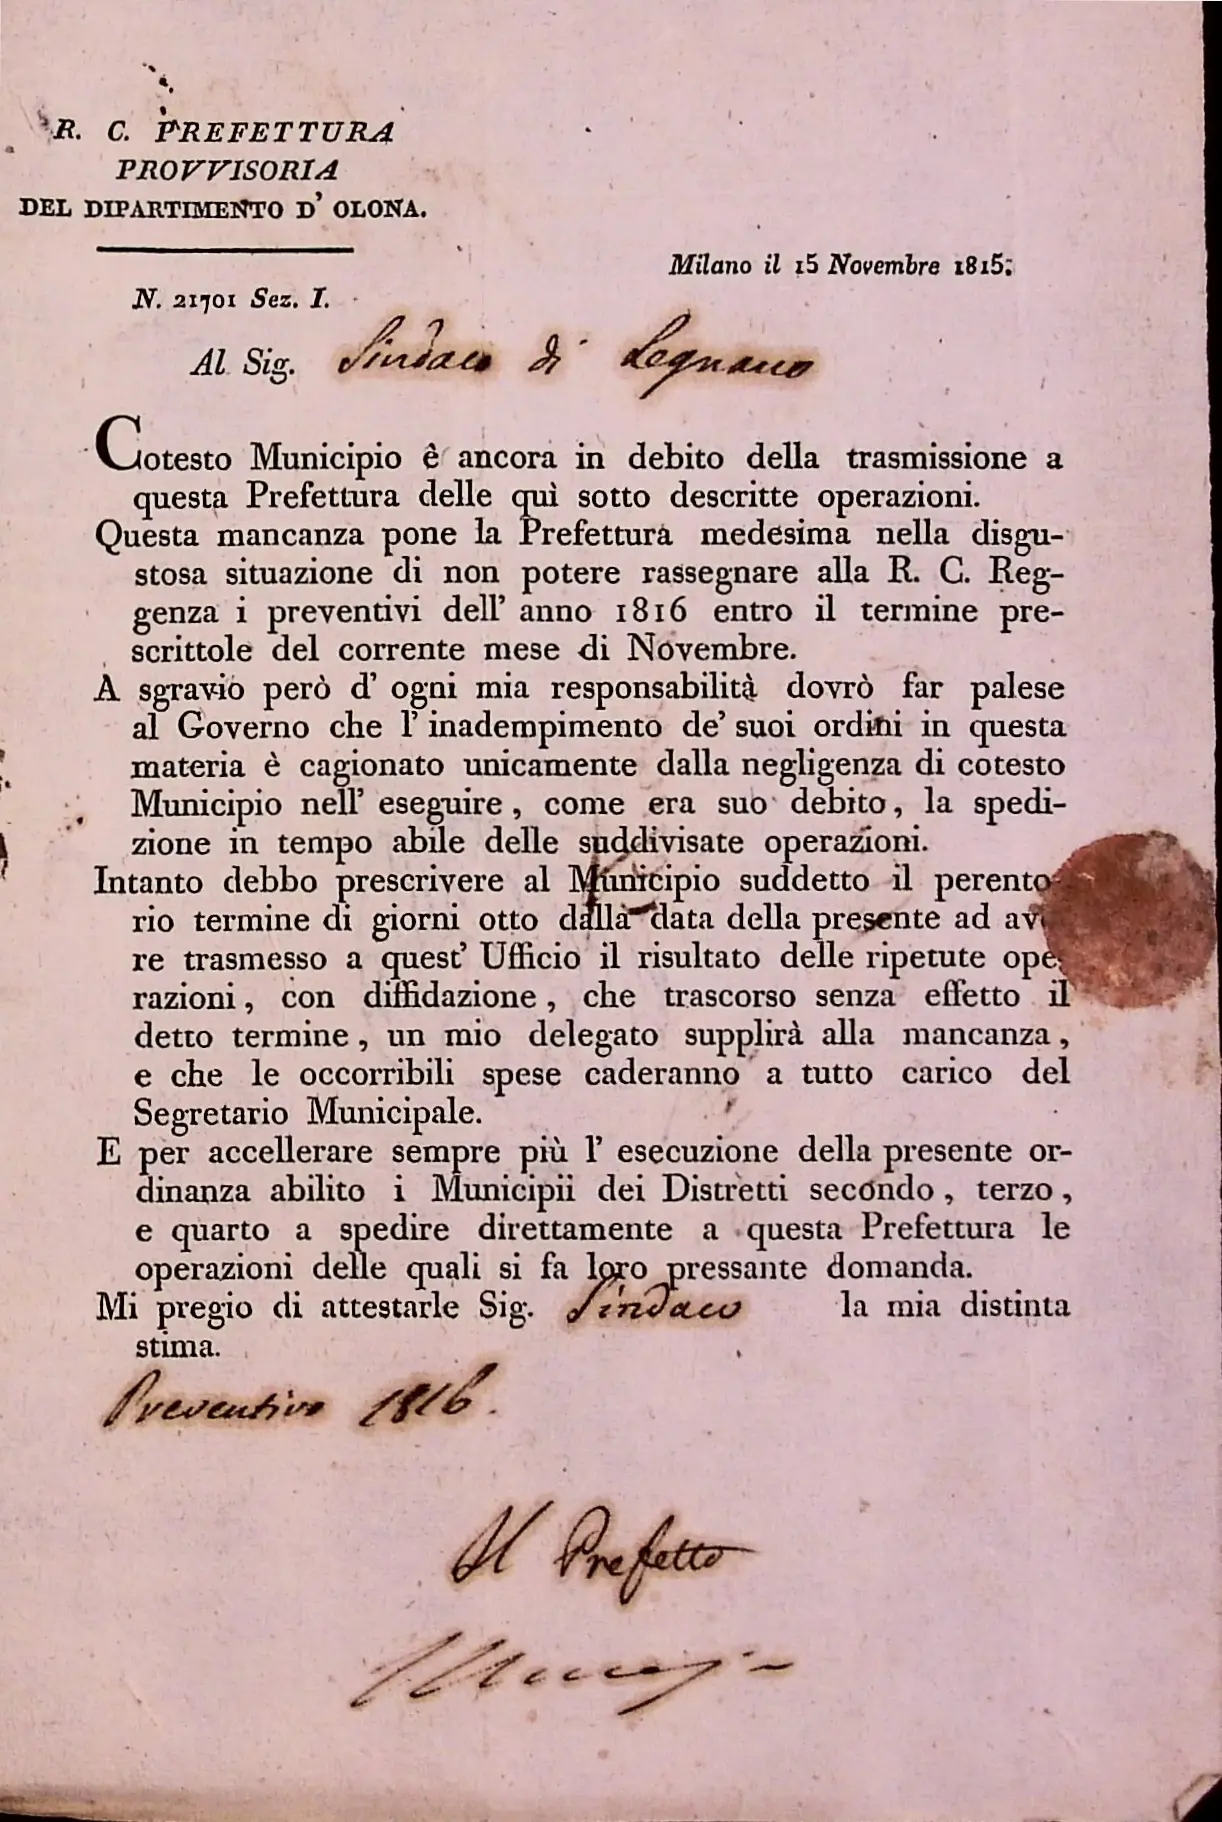 R. C. PREFETTURA
PROVVISORIA
DEL DIPARTIMENTO D' OLONA.
Milano il 15 Novembre 1815.
N. 21701 Sez. I.
Al Sig. Sindaco di Legnano
Cotesto Municipio è ancora in debito della trasmissione a
questa Prefettura delle quì sotto descritte operazioni.
Questa mancanza pone la Prefettura medesima nella disgu-
stosa situazione di non potere rassegnare alla R. C. Reg-
genza i preventivi dell' anno 1816 entro il termine pre-
scrittole del corrente mese di Novembre.
A sgravio però d' ogni mia responsabilità dovrò far palese
al Governo che l' inadempimento de' suoi ordini in questa
materia è cagionato unicamente dalla negligenza di cotesto
Municipio nell' eseguire, come era suo debito, la spedi-
zione in tempo abile delle suddivisate operazioni.
Intanto debbo prescrivere al Municipio suddetto il perento-
rio termine di giorni otto dalla data della presente ad ave-
re trasmesso a quest' Ufficio il risultato delle ripetute ope-
razioni, con diffidazione, che trascorso senza effetto il
detto termine, un mio delegato supplirà alla mancanza,
e che le occorribili spese caderanno a tutto carico del
Segretario Municipale.
E per accellerare sempre più l' esecuzione della presente or-
dinanza abilito i Municipii dei Distretti secondo, terzo,
e quarto a spedire direttamente a questa Prefettura le
operazioni delle quali si fa loro pressante domanda.
Mi pregio di attestarle Sig. Sindaco la mia distinta
stima.
Preventivo 1816.
Il Prefetto